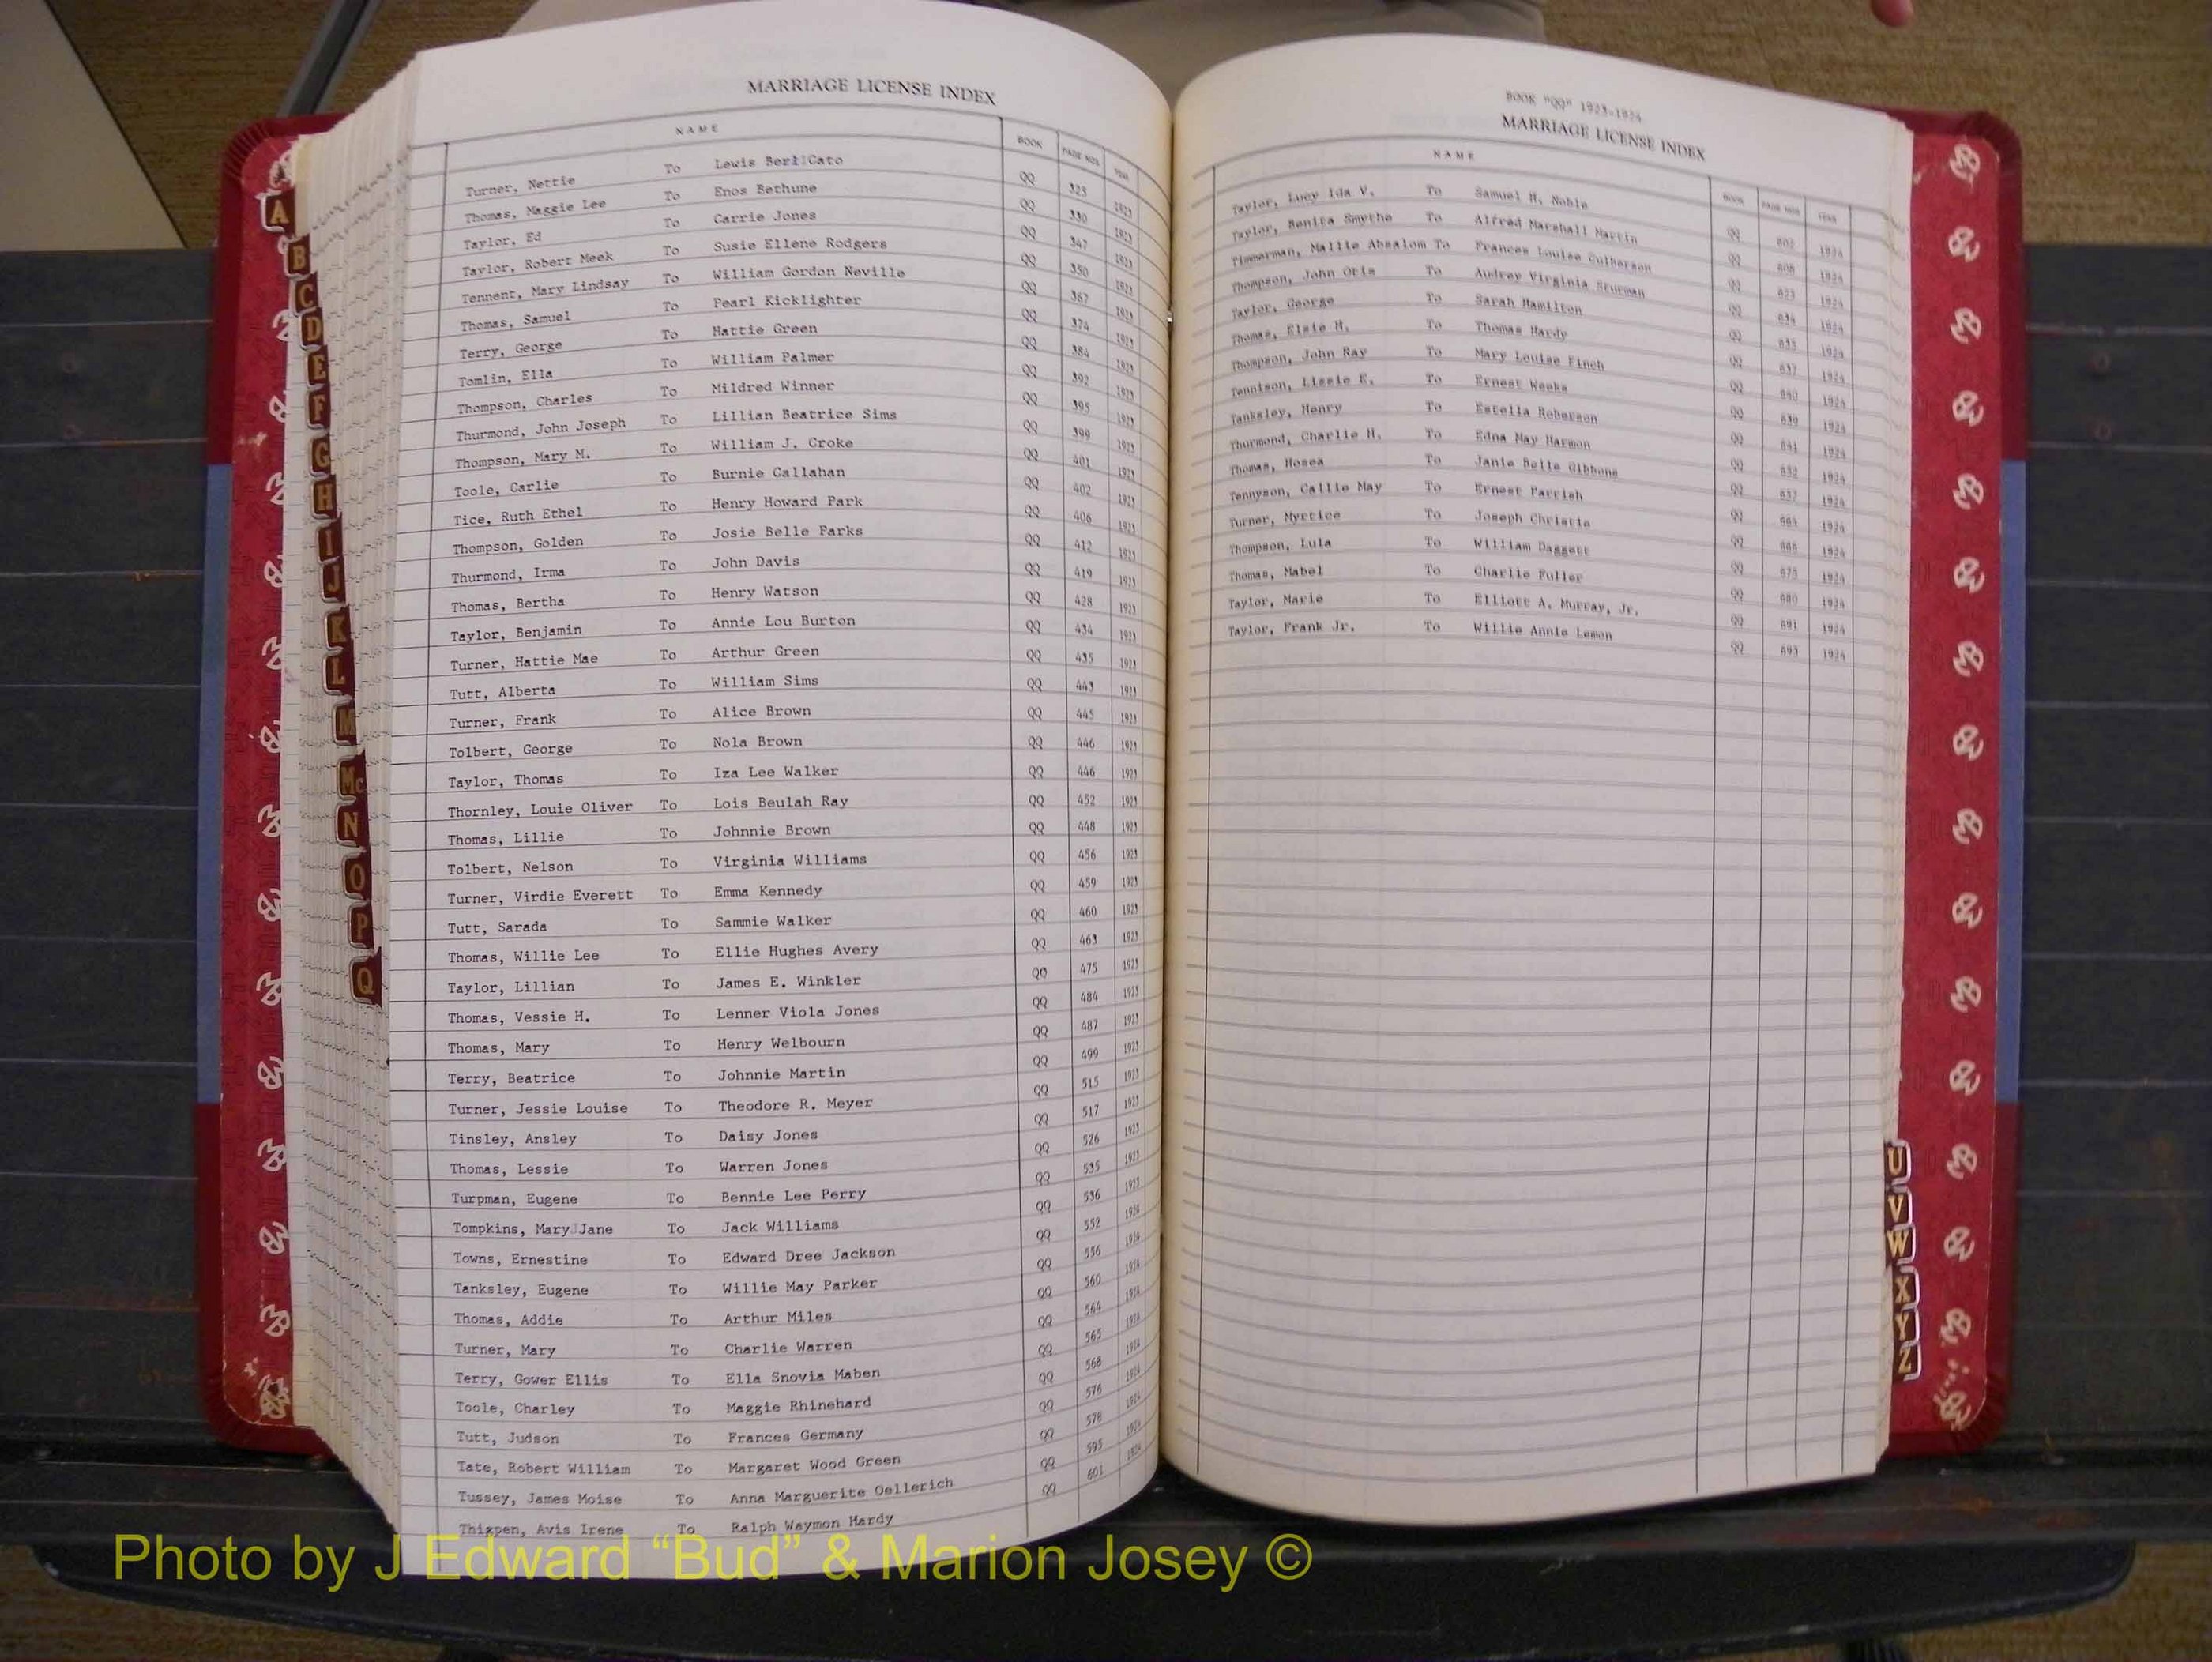 MARRIAGE LICENSE INDEX
NAME BOOK PAGE NOS. YEAR
Turner, Nettie To Lewis Beri Cato QQ 325 1923
Thomas, Maggie Lee To Enos Bethune QQ 330 1923
Taylor, Ed To Carrie Jones QQ 347 1923
Taylor, Robert Meek To Susie Ellene Rodgers QQ 350 1923
Tennent, Mary Lindsay To William Gordon Neville QQ 367 1923
Thomas, Samuel To Pearl Kicklighter QQ 374 1923
Terry, George To Hattie Green QQ 384 1923
Tomlin, Ella To William Palmer QQ 392 1923
Thompson, Charles To Mildred Winner QQ 395 1923
Thurmond, John Joseph To Lillian Beatrice Sims QQ 399 1923
Thompson, Mary M. To William J. Croke QQ 401 1923
Toole, Carlie To Burnie Callahan QQ 402 1923
Tice, Ruth Ethel To Henry Howard Park QQ 406 1923
Thompson, Golden To Josie Belle Parks QQ 412 1923
Thurmond, Irma To John Davis QQ 419 1923
Thomas, Bertha To Henry Watson QQ 428 1923
Taylor, Benjamin To Annie Lou Burton QQ 434 1923
Turner, Hattie Mae To Arthur Green QQ 435 1923
Tutt, Alberta To William Sims QQ 443 1923
Turner, Frank To Alice Brown QQ 445 1923
Tolbert, George To Nola Brown QQ 446 1923
Taylor, Thomas To Iza Lee Walker QQ 446 1923
Thornley, Louie Oliver To Lois Beulah Ray QQ 452 1923
Thomas, Lillie To Johnnie Brown QQ 448 1923
Tolbert, Nelson To Virginia Williams QQ 456 1923
Turner, Virdie Everett To Emma Kennedy QQ 459 1923
Tutt, Sarada To Sammie Walker QQ 460 1923
Thomas, Willie Lee To Ellie Hughes Avery QQ 463 1923
Taylor, Lillian To James E. Winkler QQ 475 1923
Thomas, Vessie H. To Lenner Viola Jones QQ 484 1923
Thomas, Mary To Henry Welbourn QQ 487 1923
Terry, Beatrice To Johnnie Martin QQ 499 1923
Turner, Jessie Louise To Theodore R. Meyer QQ 515 1923
Tinsley, Ansley To Daisy Jones QQ 517 1923
Thomas, Lessie To Warren Jones QQ 526 1923
Turpman, Eugene To Bennie Lee Perry QQ 535 1923
Tompkins, Mary Jane To Jack Williams QQ 536 1923
Towns, Ernestine To Edward Dree Jackson QQ 552 1924
Tanksley, Eugene To Willie May Parker QQ 556 1924
Thomas, Addie To Arthur Miles QQ 560 1924
Turner, Mary To Charlie Warren QQ 564 1924
Terry, Gower Ellis To Ella Snovia Maben QQ 565 1924
Toole, Charley To Maggie Rhinehard QQ 568 1924
Tutt, Judson To Frances Germany QQ 576 1924
Tate, Robert William To Margaret Wood Green QQ 578 1924
Tussey, James Moise To Anna Marguerite Oellerich QQ 595 1924
Thigpen, Avis Irene To Ralph Waymon Hardy QQ 601 1924
BOOK "QQ" 1923-1924
MARRIAGE LICENSE INDEX
NAME BOOK PAGE NOS. YEAR
Taylor, Lucy Ida V. To Samuel H. Noble QQ 602 1924
Taylor, Benita Smythe To Alfred Marshall Martin QQ 608 1924
Timmerman, Mallie Absalom To Frances Louise Culberson QQ 623 1924
Thompson, John Otis To Audrey Virginia Sturman QQ 634 1924
Taylor, George To Sarah Hamilton QQ 635 1924
Thomas, Elsie H. To Thomas Hardy QQ 637 1924
Thompson, John Ray To Mary Louise Finch QQ 640 1924
Tennison, Lissie E. To Ernest Weeks QQ 639 1924
Tanksley, Henry To Estella Roberson QQ 641 1924
Thurmond, Charlie H. To Edna May Harmon QQ 652 1924
Thomas, Hosea To Janie Belle Gibbons QQ 657 1924
Tennyson, Callie May To Ernest Parrish QQ 664 1924
Turner, Myrtice To Joseph Christie QQ 666 1924
Thompson, Lula To William Daggett QQ 675 1924
Thomas, Mabel To Charlie Fuller QQ 680 1924
Taylor, Marie To Elliott A. Murray, Jr. QQ 691 1924
Taylor, Frank Jr. To Willie Annie Lemon QQ 693 1924
A
B
C
D
E
F
G
H
I
J
K
L
M
Mc
N
O
P
Q
U
V
W
X
Y
Z
Photo by J Edward “Bud” & Marion Josey ©